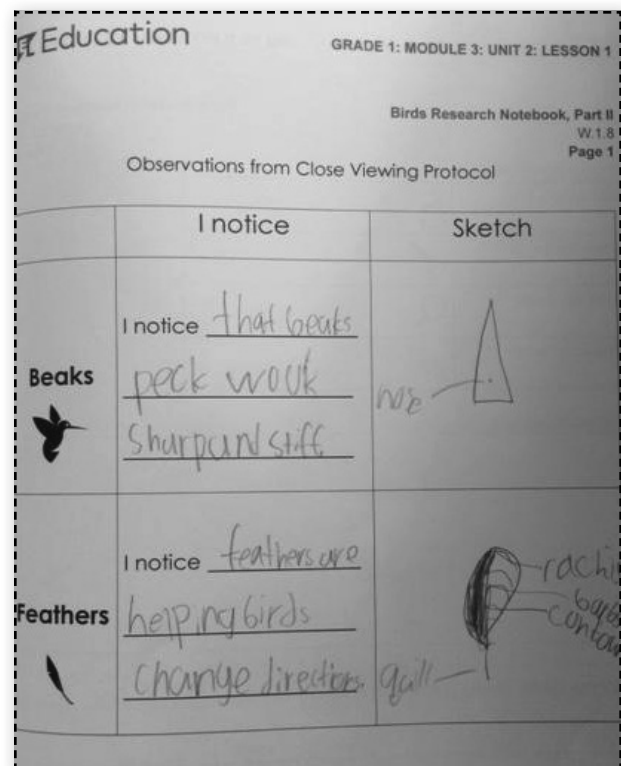 Education
GRADE 1: MODULE 3: UNIT 2: LESSON 1
Birds Research Notebook, Part II
W.1.8
Page 1
Observations from Close Viewing Protocol
I notice
Sketch
Beaks
I notice that beaks
peck wouk
Sharp and stiff
nose
Feathers
I notice feathers are
helping birds
change directions.
rachi
barbs
contou
quill